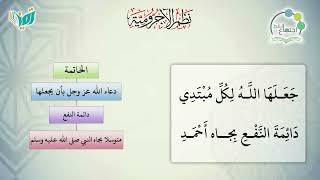 نظم الآجرومية
الخاتمة
دعاء الله عز وجل بأن يجعلها
دائمة النفع
متوسلا بجاه النبي صلى الله عليه وسلم
جَعَلَهَا اللَّهُ لِكُلِّ مُبْتَدِي
دَائِمَةَ النَّفْعِ بِجَاهِ أَحْمَدِ